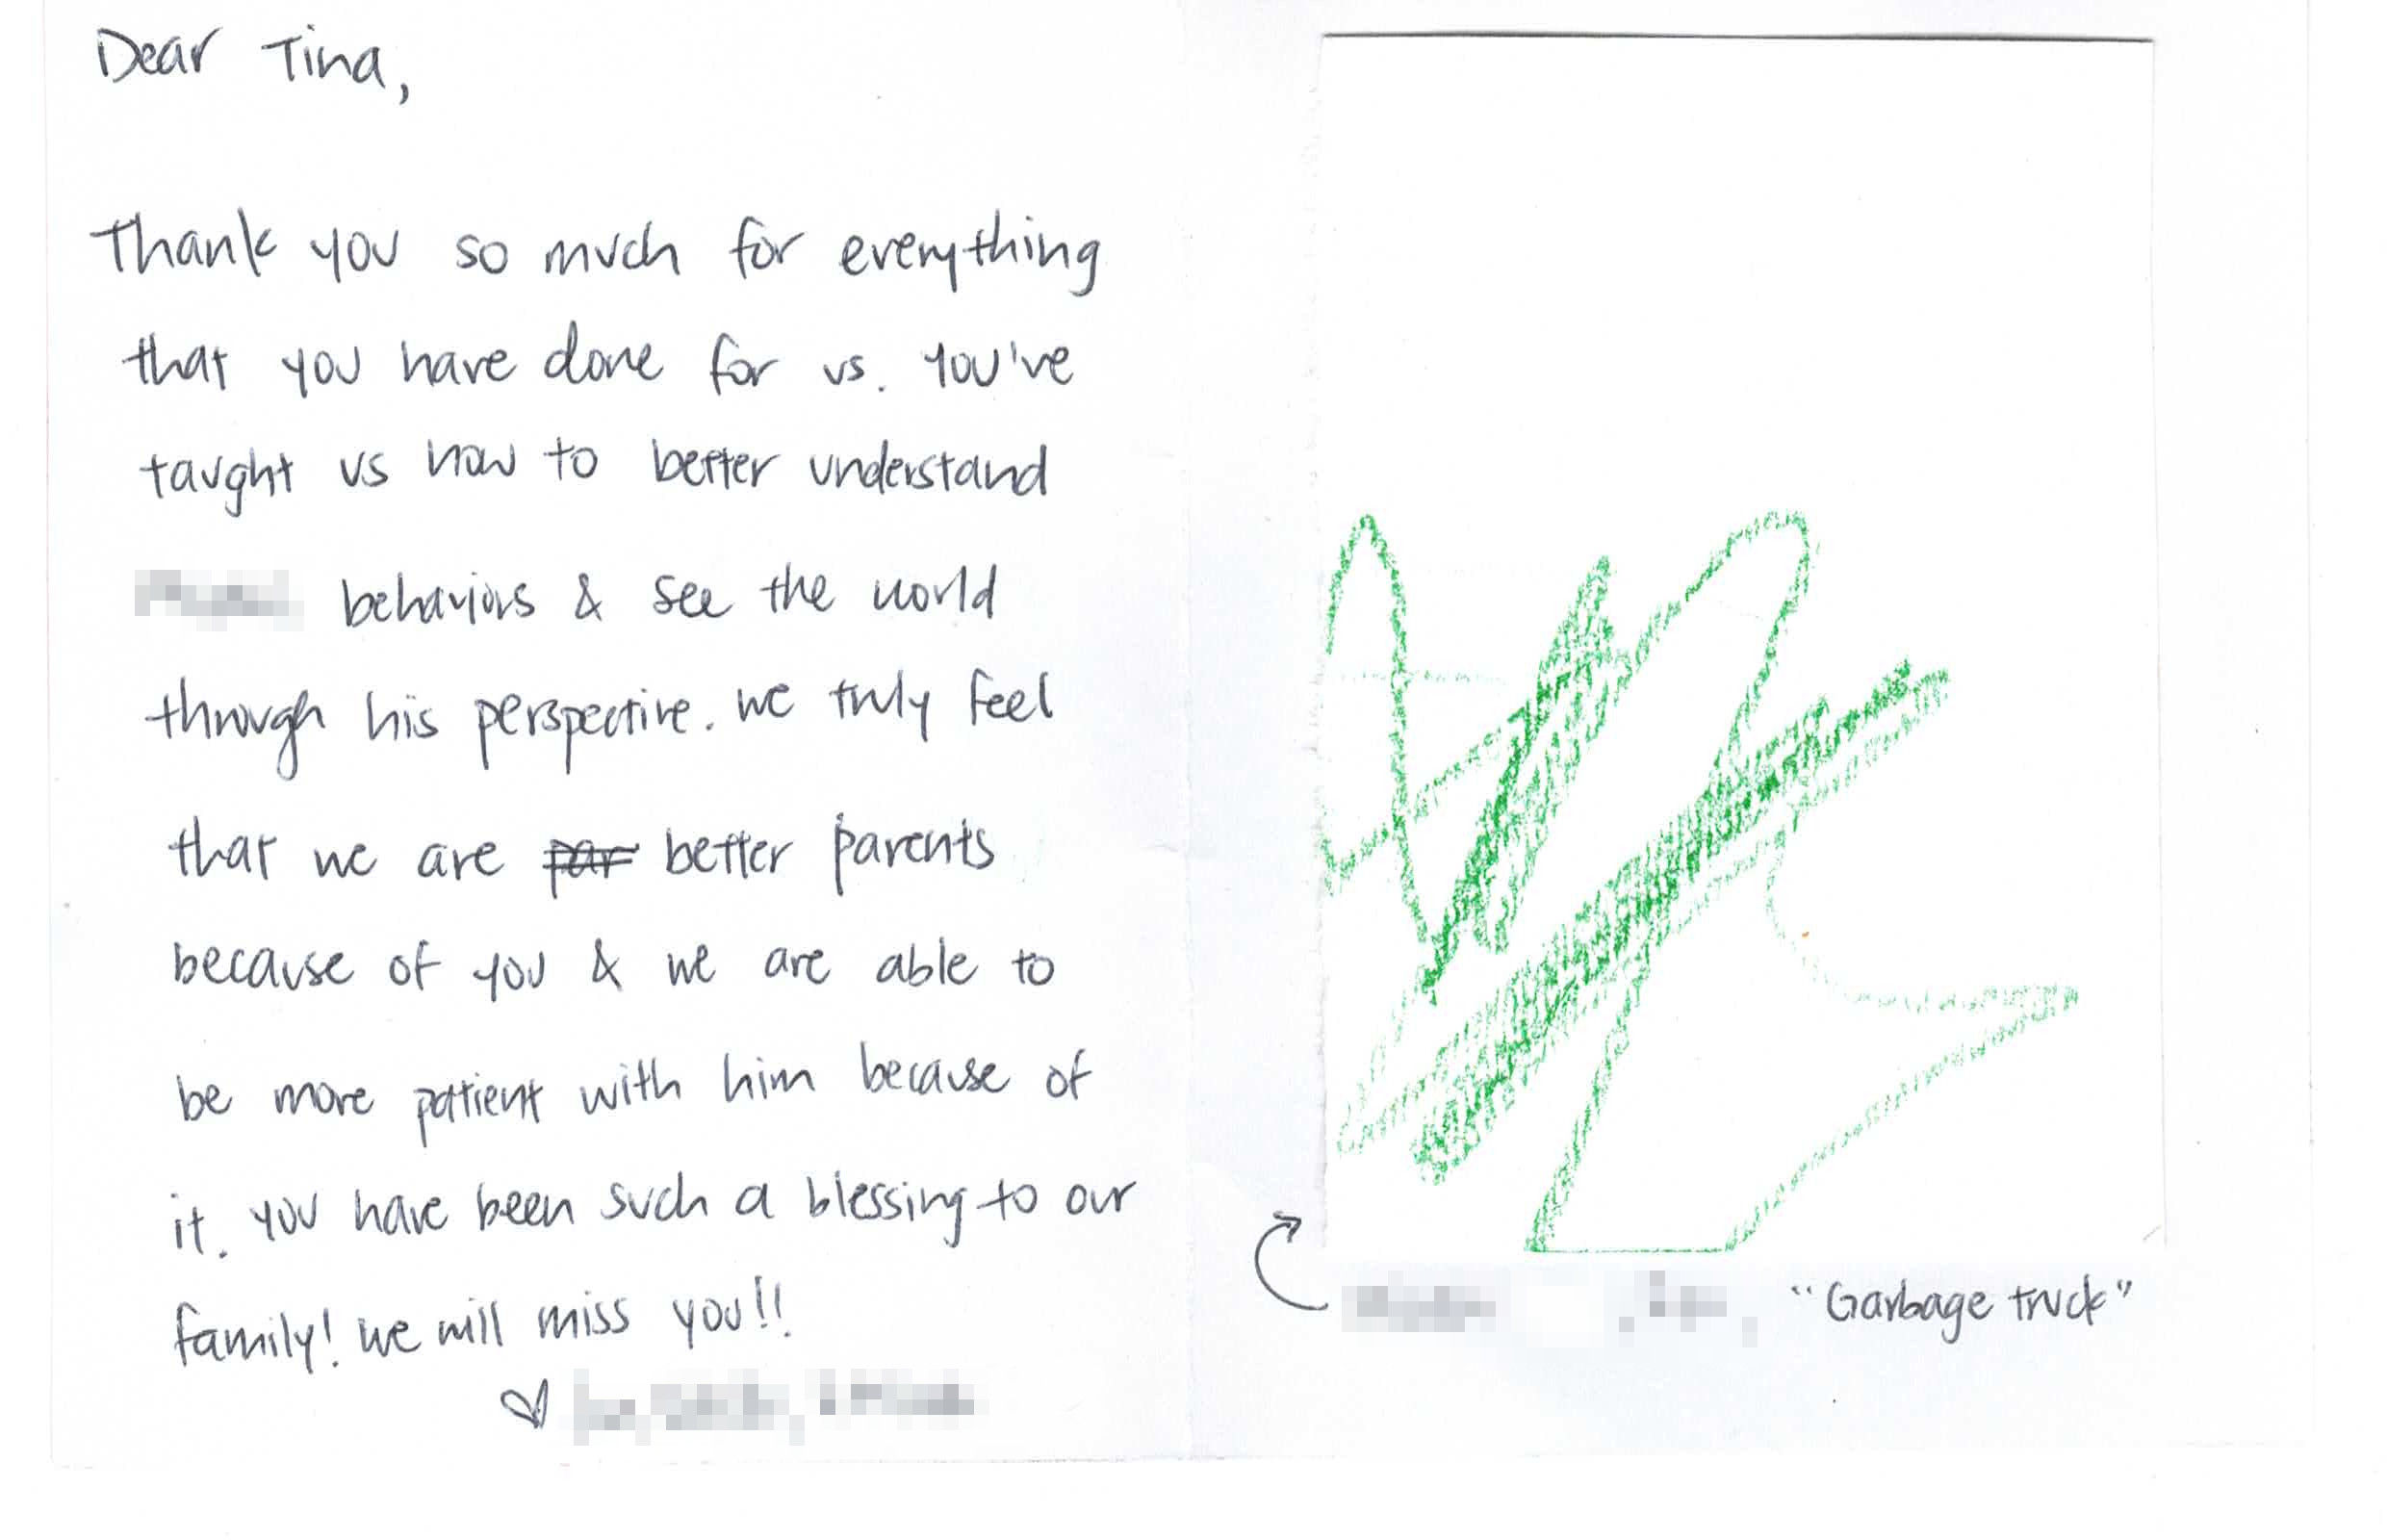 Dear Tina,
Thank you so much for everything
that you have done for us. You've
taught us how to better understand
behaviors & see the world
through his perspective. We truly feel
that we are par better parents
because of you & we are able to
be more patient with him because of
it. You have been such a blessing to our
family! We will miss you!!
"Garbage truck"